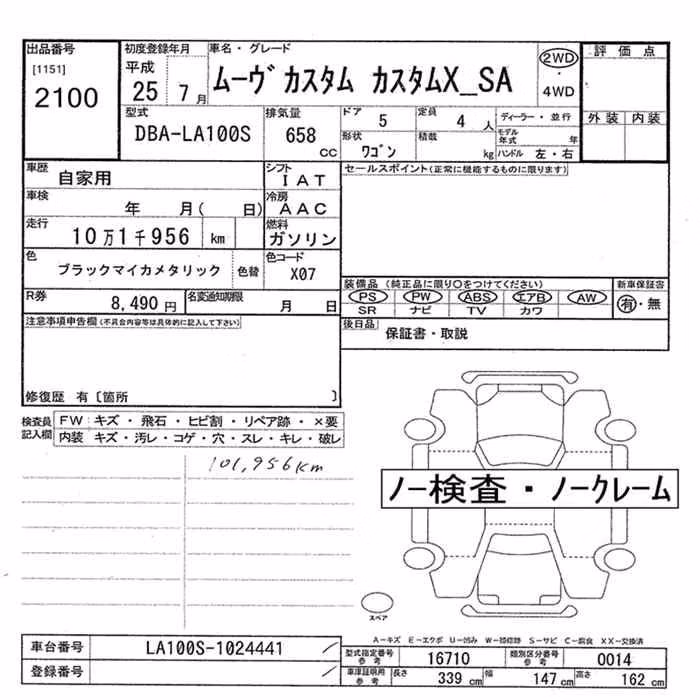 出品番号
[1151]
2100
初度登録年月
平成
25 7月
車名・グレード
ムーヴ カスタム カスタムX_SA
2WD
・
4WD
評価点
外装 内装
型式
DBA-LA100S
排気量
658
CC
ドア
5
定員
4 人
形状
ワゴン
積載
kg
ディーラー・並行
モデル年式 年
ハンドル 左・右
車歴
自家用
シフト
IAT
車検
年 月( 日)
冷房
AAC
走行
10万1千956 km
燃料
ガソリン
色
ブラックマイカメタリック 色替
色コード
X07
R券
8,490 円
名変通知期限
月 日
セールスポイント(正常に機能するものに限ります)
装備品 (純正品に限り○をつけてください)
PS PW ABS エアB AW
SR ナビ TV カワ
新車保証書
有・無
後日品
保証書・取説
注意事項申告欄(不具合内容等は具体的に記入して下さい)
修復歴 有〔箇所 〕
検査員記入欄
FW キズ・飛石・ヒビ割・リペア跡・×要
内装 キズ・汚レ・コゲ・穴・スレ・キレ・破レ
101,956km
ノー検査・ノークレーム
スペア
A-キズ E-エクボ U-凹み W-補修跡 S-サビ C-腐食 XX-交換済
車台番号
LA100S-1024441
登録番号
型式指定番号
参考
16710
類別区分番号
参考
0014
車庫証明用
参考
長さ
339 cm
幅
147 cm
高さ
162 cm